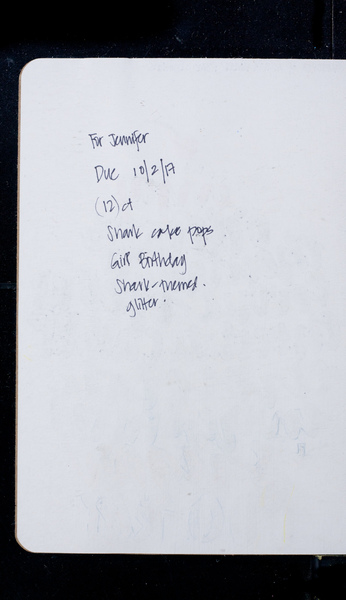 For Jennifer
Due 10/2/17
(12) ct
Shark cake pops.
Girl Birthday
Shark-themed.
glitter.